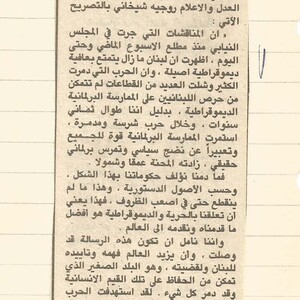 العدل والاعلام روجيه شيخاني بالتصريح
الآتي :
« ان المناقشات التي جرت في المجلس
النيابي منذ مطلع الاسبوع الماضي وحتى
اليوم ، اظهرت ان لبنان ما زال يتمتع بعافية
ديموقراطية اصيلة . وان الحرب التي دمرت
الكثير وشلت العديد من القطاعات لم تتمكن
من حرص اللبنانيين على الممارسة البرلمانية
الديموقراطية ، بدليل اننا طوال ثماني
سنوات ، وخلال حرب شرسة ومدمرة ،
استمرت الممارسة البرلمانية قوة للجميع
وتعبيراً عن نضج سياسي وتمرس برلماني
حقيقي ، زادته المحنة عمقا وشمولا .
فما دمنا نؤلف حكوماتنا بهذا الشكل ،
وحسب الأصول الدستورية ، وهذا ما لم
ينقطع حتى في اصعب الظروف ، فهذا يعني
ان تعلقنا بالحرية والديموقراطية هو افضل
ما قدمناه ونقدمه الى العالم .
واننا نامل ان تكون هذه الرسالة قد
وصلت ، وان يزيد العالم فهمه وتاييده
للبنان ولقضيته ، وهو البلد الصغير الذي
تمكن من الحفاظ على تلك القيم الانسانية
وقد دمر كل شيء . لقد استهدفت الحرب